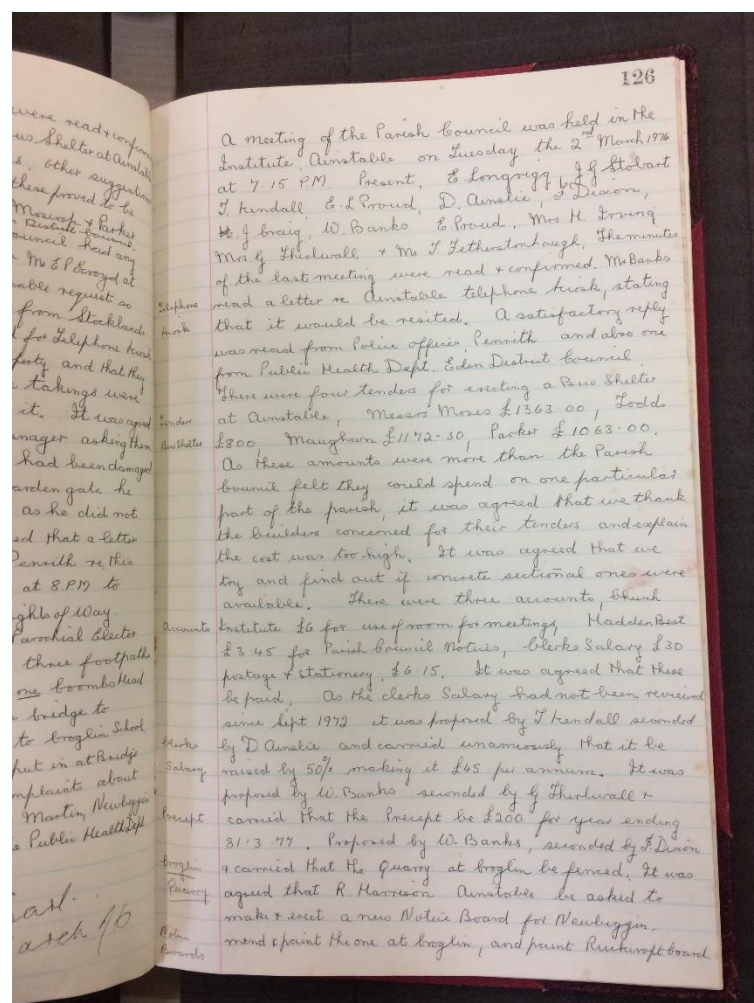 126
were read & confirm
us Shelter at Ainstab
s. other suggestions
these proved to be
Moscrop & Parker
District Counc
ouncil had any
Mr E P Ecroyd at
nable request as
from Stocklands
for Telephone kiosk
perty and that they
takings were
it. It was agreed
anager asking them
had been damaged
arden gate he
as he did not
ed that a letter
Penrith re, this
at 8. P.M to
ghts of Way.
Parochial Elector
three footpaths
one Coombs Head
bridge to
to Croglin School.
put in at Bridge
mplaints about
Martin, Newbiggin
Public Health Dept.
arch 76
A meeting of the Parish Council was held in the
Institute, Ainstable on Tuesday the 2nd March 1976
at 7.15 P.M. Present, E Longrigg, J G Stobart
T. Kendall, E-L Proud, D. Ainslie, F Dixon,
J Craig, W. Banks E. Proud, Mrs H. Irving
Mrs G Thirlwall & Mr T. Fetherstonhaugh, The minutes
of the last meeting were read & confirmed. Mr Banks
Telephone read a letter re Ainstable telephone kiosk, stating
kiosk that it would be resited. A satisfactory reply
was read from Police officer, Penrith and also one
from Public Health Dept. Eden District Council
There were four tenders for erecting a Bus Shelter
Tenders at Ainstable, Messrs Moses £1363.00, Todds
Bus Shelter £800, Maughan £1172-30, Parker £1063-00.
As these amounts were more than the Parish
Council felt they could spend on one particular
part of the parish, it was agreed that we thank
the builders concerned for their tenders and explain
the cost was too high. It was agreed that we
try and find out if concrete sectional ones were
available. There were three accounts, Church
Accounts Institute £6 for use of room for meetings, Madden Best
£3.45 for Parish Council Notices, Clerks Salary £30
postage & stationery, £6.15. It was agreed that these
be paid. As the clerks Salary had not been reviewed
since Sept 1972 it was proposed by T Kendall seconded
Clerks by D Ainslie and carried unanimously that it be
Salary raised by 50% making it £45 per annum. It was
proposed by W. Banks seconded by G Thirlwall &
Precept carried that the Precept be £200 for year ending
31.3.77. Proposed by W. Banks, seconded by F. Dixon
Croglin & carried that the Quarry at Croglin be fenced. It was
Quarry agreed that R. Harrison Ainstable be asked to
make & erect a new Notice Board for Newbiggin.
Notice mend & paint the one at Croglin, and paint Ruckcroft board
Boards